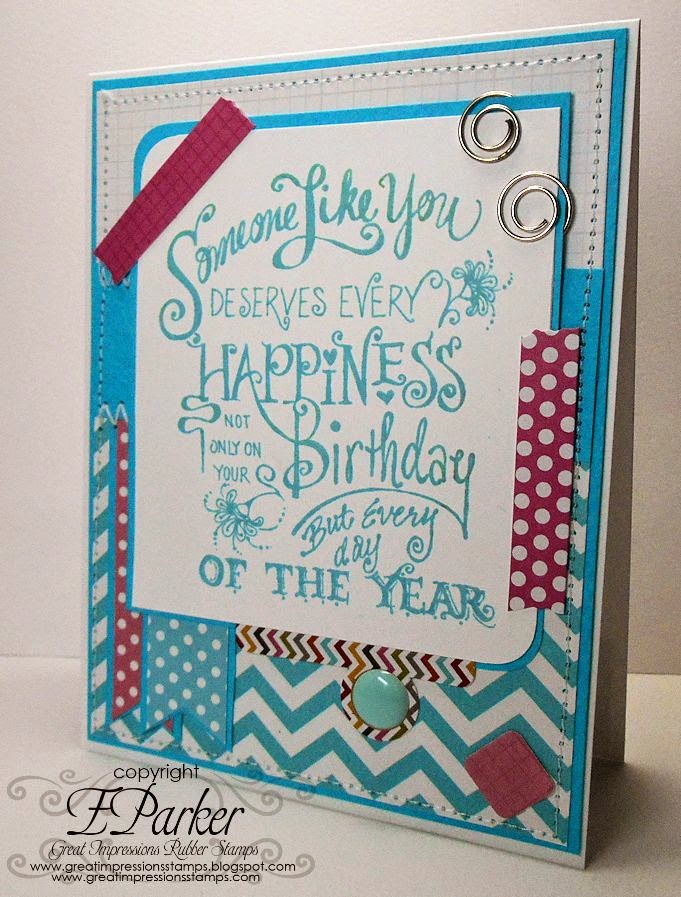 Someone Like You
DESERVES EVERY
HAPPiNESS
NOT
ONLY ON
YOUR
Birthday
But Every
day
OF THE YEAR
copyright
E.Parker
Great Impressions Rubber Stamps
www.greatimpressionsstamps.blogspot.com
www.greatimpressionsstamps.com